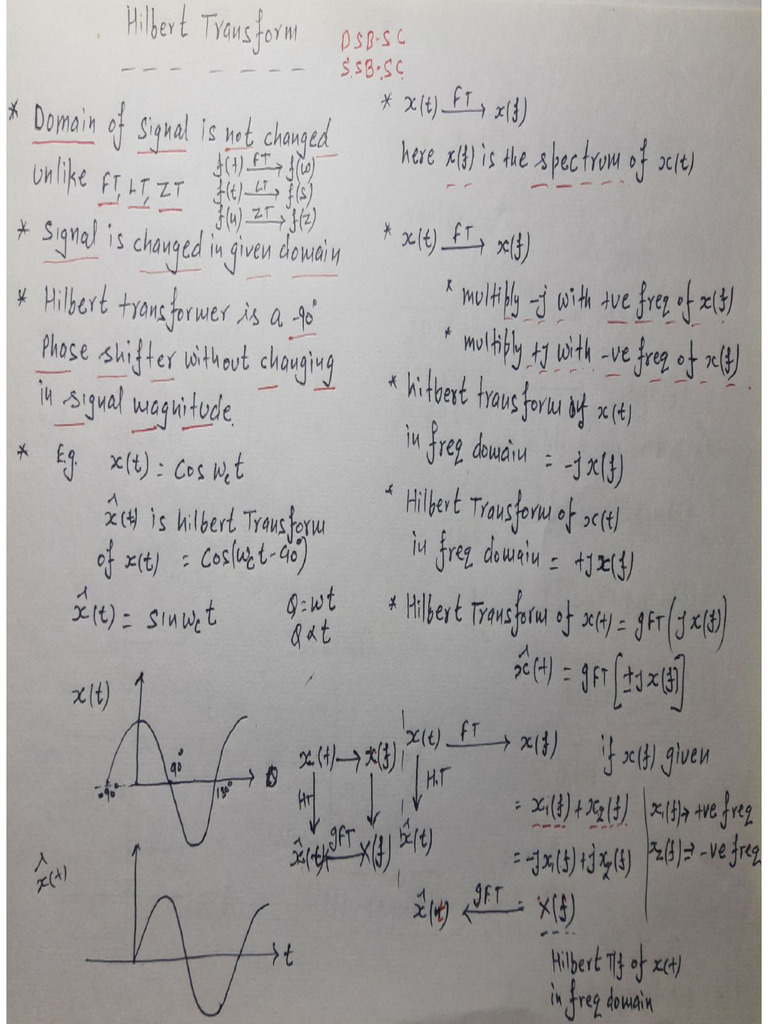 Hilbert Transform
DSB-SC
SSB-SC
* Domain of Signal is not changed
unlike FT, LT, ZT
f(t) FT→ f(ω)
f(t) LT→ f(s)
f(n) ZT→ f(z)
* Signal is changed in given domain
* Hilbert transformer is a -90°
Phase shifter without changing
in signal magnitude.
* Eg. x(t) = Cos ωct
x̂(t) is hilbert Transform
of x(t) = Cos(ωct-90°)
x̂(t) = sin ωct
Q = ωt
Q ∝ t
x(t)
-90°
90°
180°
x̂(t)
t
* x(t) FT→ x(f)
here x(f) is the spectrum of x(t)
* x(t) FT→ x(f)
* multibly -j with +ve freq of x(f)
* multibly +j with -ve freq of x(f)
* hilbert transform of x(t)
in freq domain = -j x(f)
* Hilbert Transform of x(t)
in freq domain = +j x(f)
* Hilbert Transform of x(t) = IFT(j x(f))
x̂(t) = IFT[±j x(f)]
x(t) → x(f)
HT
x̂(t) ←IFT X(f)
x(t) FT→ x(f) if x(f) given
H.T
x̂(t)
= x1(f) + x2(f)
x1(f) → +ve freq
= -jx1(f) + jx2(f)
x2(f) ⇒ -ve freq
x̂(t) ←IFT = X(f)
Hilbert T/f of x(t)
in freq domain